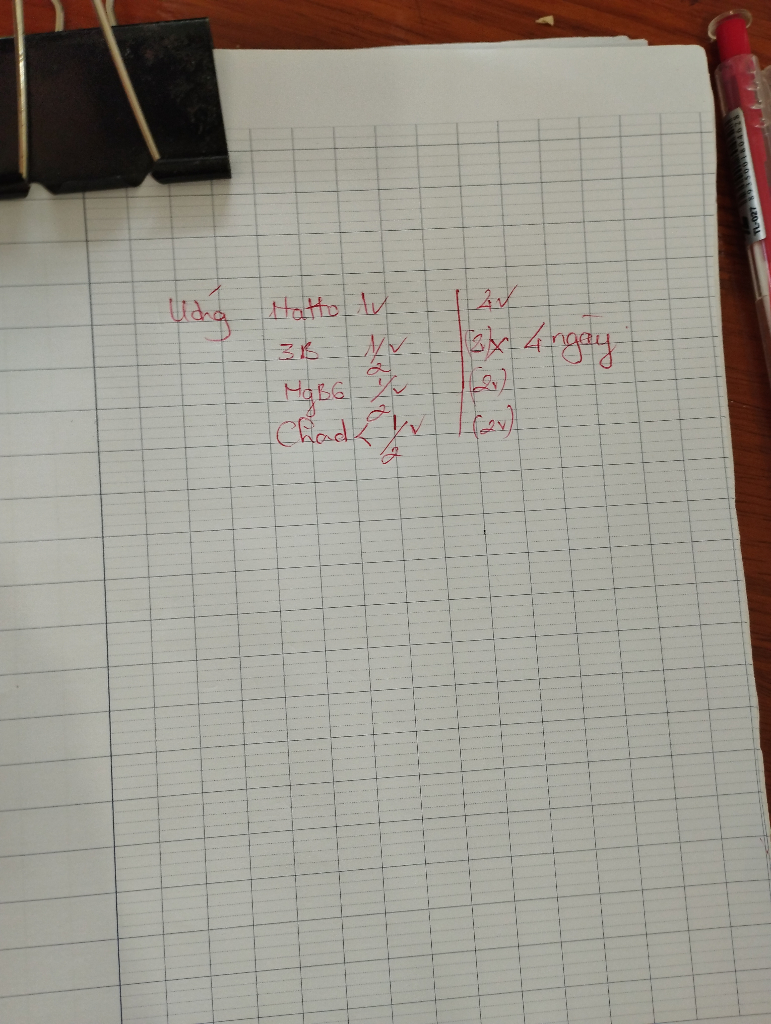 Uống Natto 1v | 2v
3B 1/2 v | (3) x 4 ngày
MgB6 1/2 v | (2v)
1/2 v | (2v)
TL-027